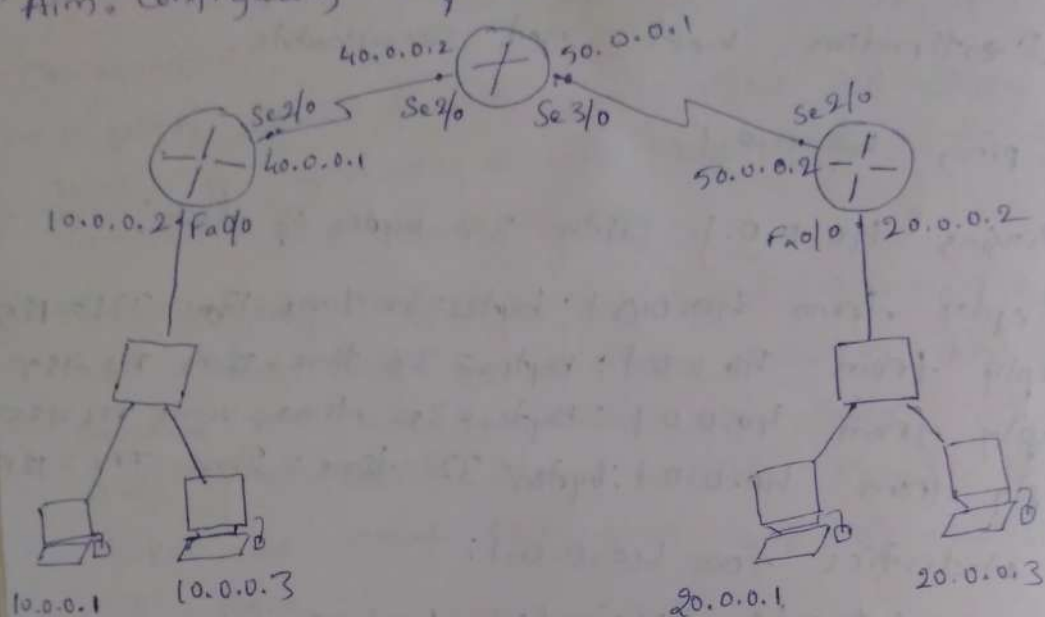 Aim: Configuring
40.0.0.2
50.0.0.1
Se2/0
Se2/0
Se3/0
Se2/0
40.0.0.1
50.0.0.2
10.0.0.2
Fa0/0
Fa0/0
20.0.0.2
10.0.0.1
10.0.0.3
20.0.0.1
20.0.0.3